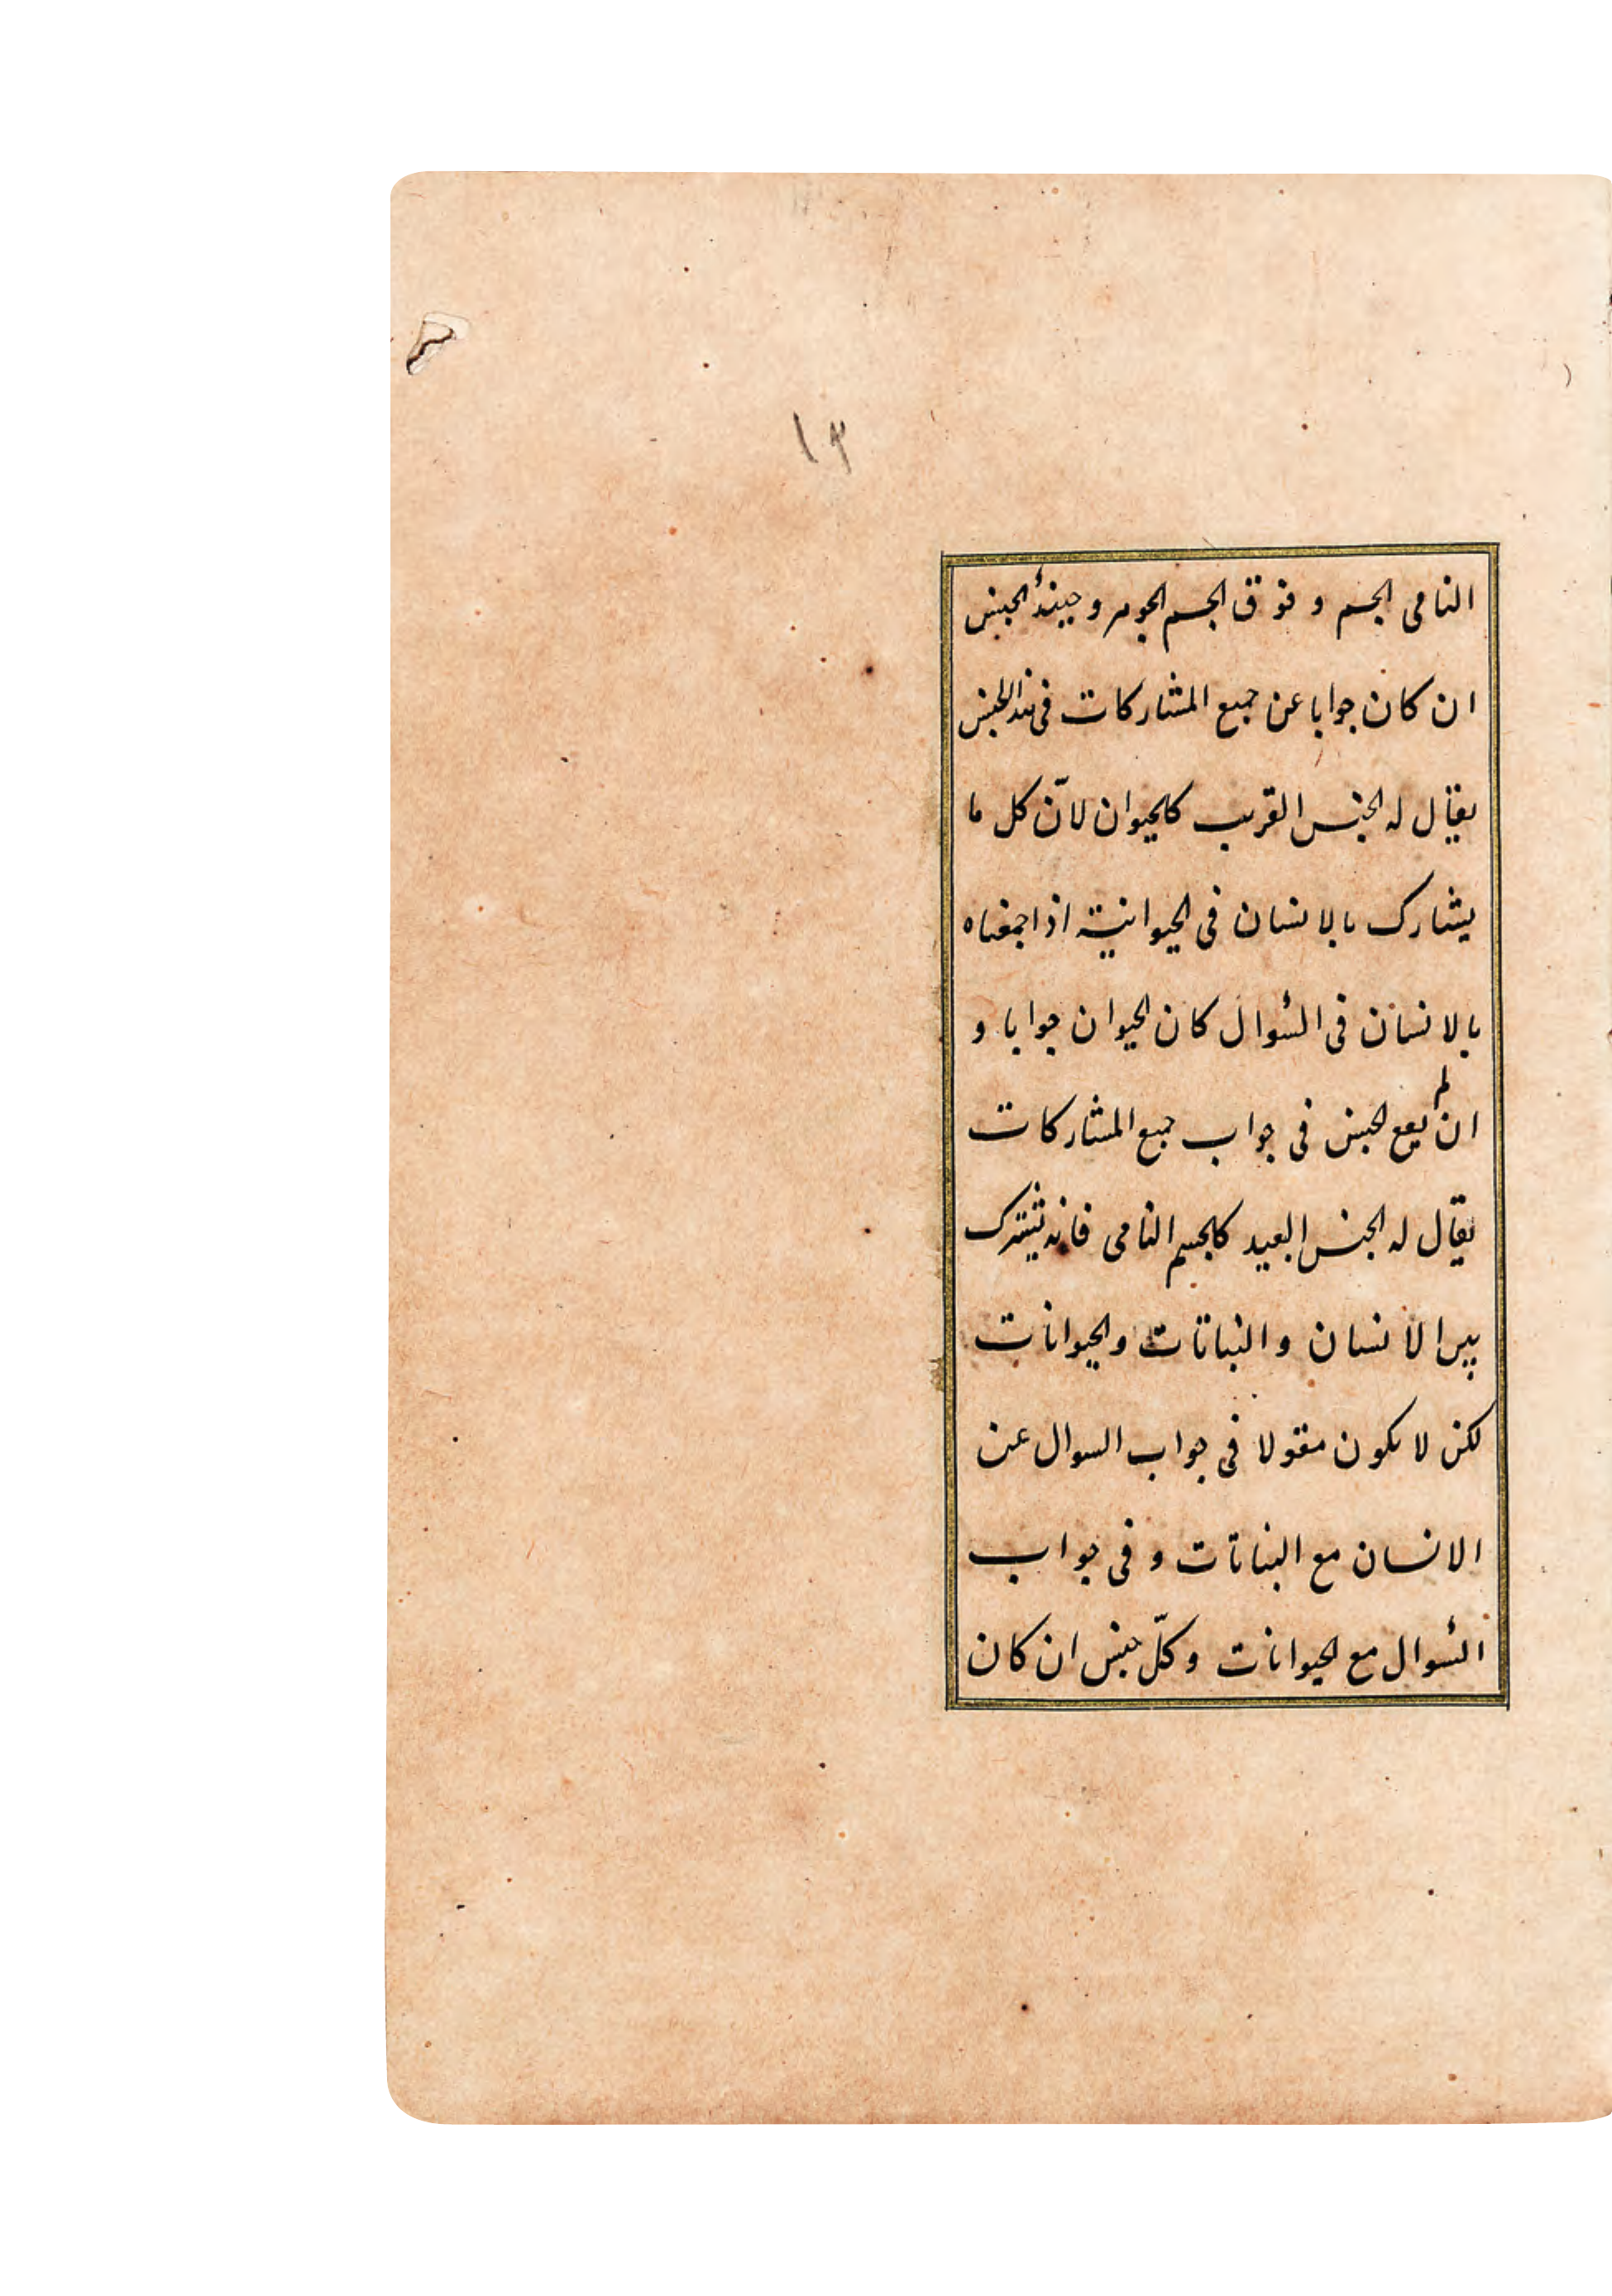 ١٣
النامى الجسم و فوق الجسم الجوهر و حينئذ الجنس
ان كان جوابا عن جميع المشاركات فى هذا الجنس
يقال له الجنس القريب كالحيوان لانّ كل ما
يشارك بالانسان فى الحيوانية اذا جمعناه
بالانسان فى السؤال كان الحيوان جوابا و
ان لم يقع الجنس فى جواب جميع المشاركات
يقال له الجنس البعيد كالجسم النامى فانه تشترك
بين الانسان و النباتات و الحيوانات
لكن لا يكون مقولا فى جواب السوال عن
الانسان مع النباتات و فى جواب
السؤال مع الحيوانات و كلّ جنس ان كان